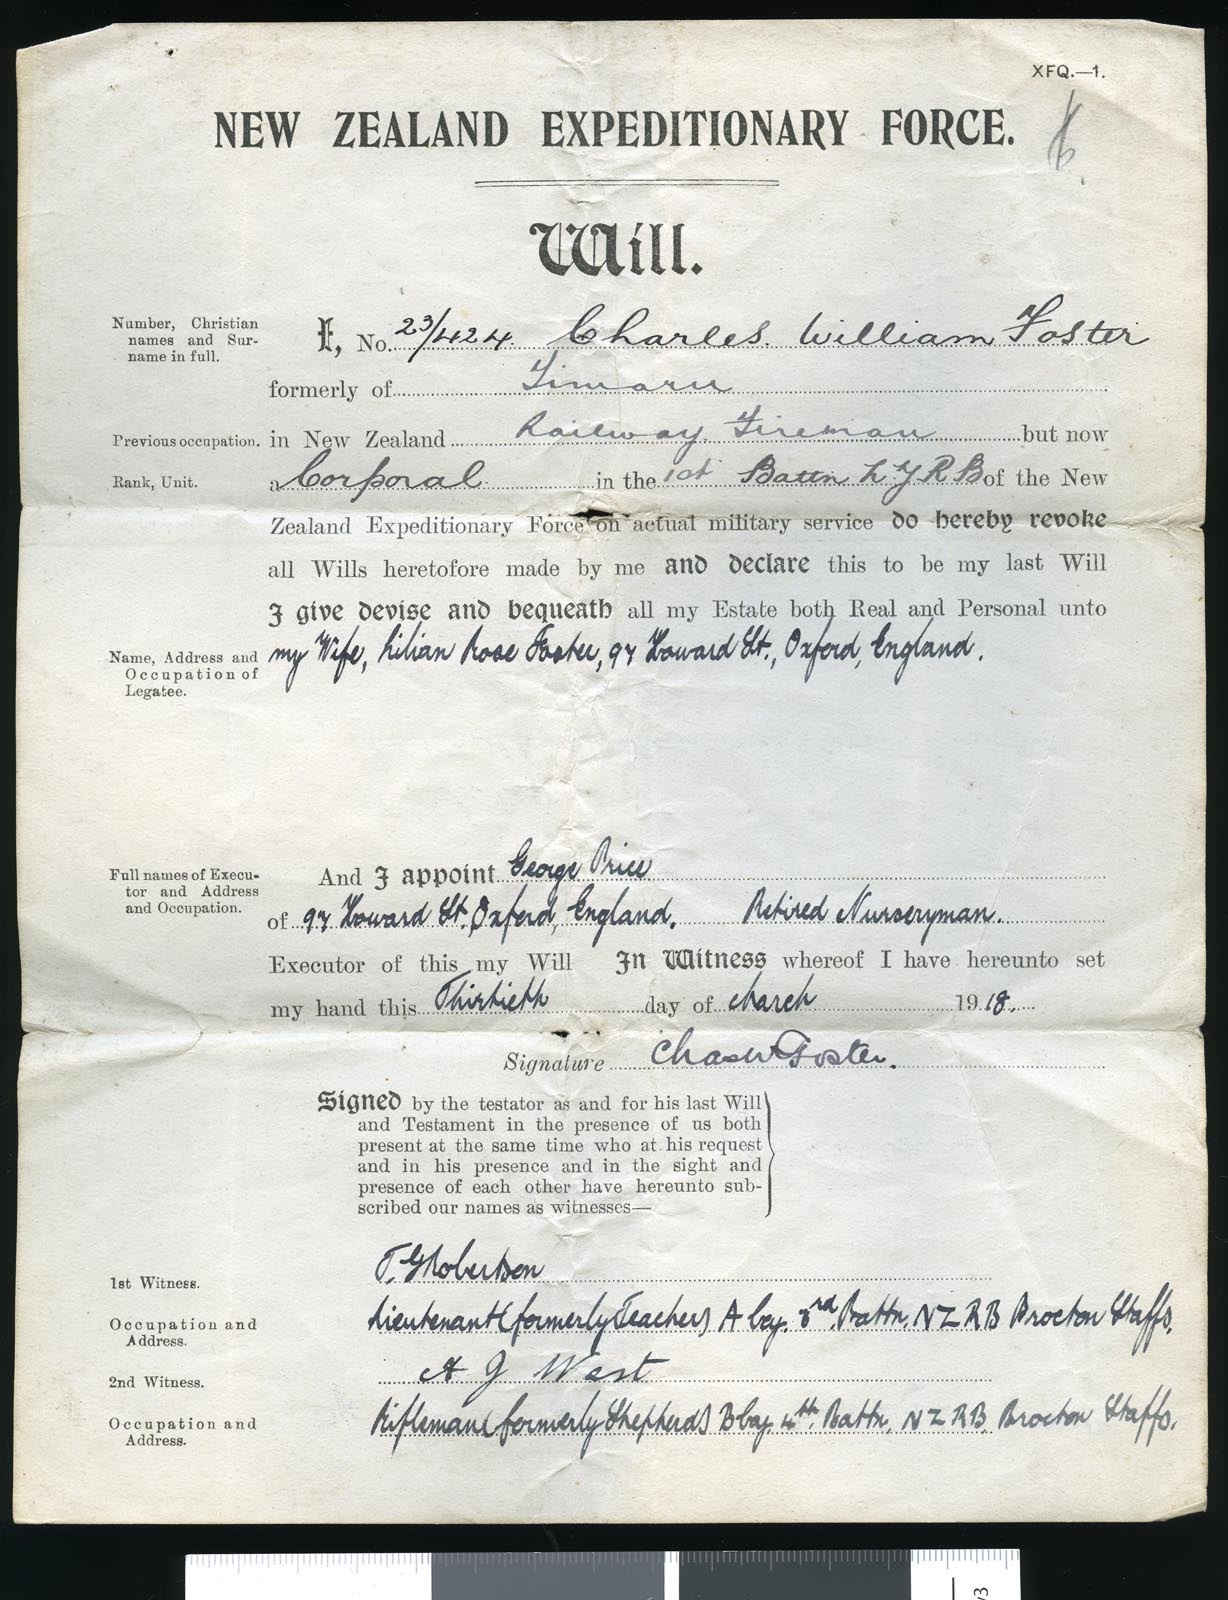 XFQ.—1.
NEW ZEALAND EXPEDITIONARY FORCE.
Will.
Number, Christian names and Surname in full.
I, No. 23/424 Charles William Foster
formerly of Timaru
Previous occupation. in New Zealand Railway Fireman but now
Rank, Unit. a Corporal in the 1st Battn N Z R B of the New
Zealand Expeditionary Force on actual military service do hereby revoke
all Wills heretofore made by me and declare this to be my last Will
I give devise and bequeath all my Estate both Real and Personal unto
Name, Address and Occupation of Legatee.
my Wife, Lilian Rose Foster, 97 Howard St., Oxford, England.
Full names of Executor and Address and Occupation.
And I appoint George Price
of 97 Howard St. Oxford, England. Retired Nurseryman.
Executor of this my Will In Witness whereof I have hereunto set
my hand this Thirtieth day of March 1918.
Signature Chas W Foster.
Signed by the testator as and for his last Will
and Testament in the presence of us both
present at the same time who at his request
and in his presence and in the sight and
presence of each other have hereunto sub-
scribed our names as witnesses—
1st Witness. T. G Robertson
Occupation and Address. Lieutenant (formerly Teacher) A Coy. 3rd. Battn. N Z R B Brocton Staffs.
2nd Witness. A J West
Occupation and Address. Rifleman (formerly Shepherd) B Coy. 4th. Battn, N Z R B, Brocton Staffs.